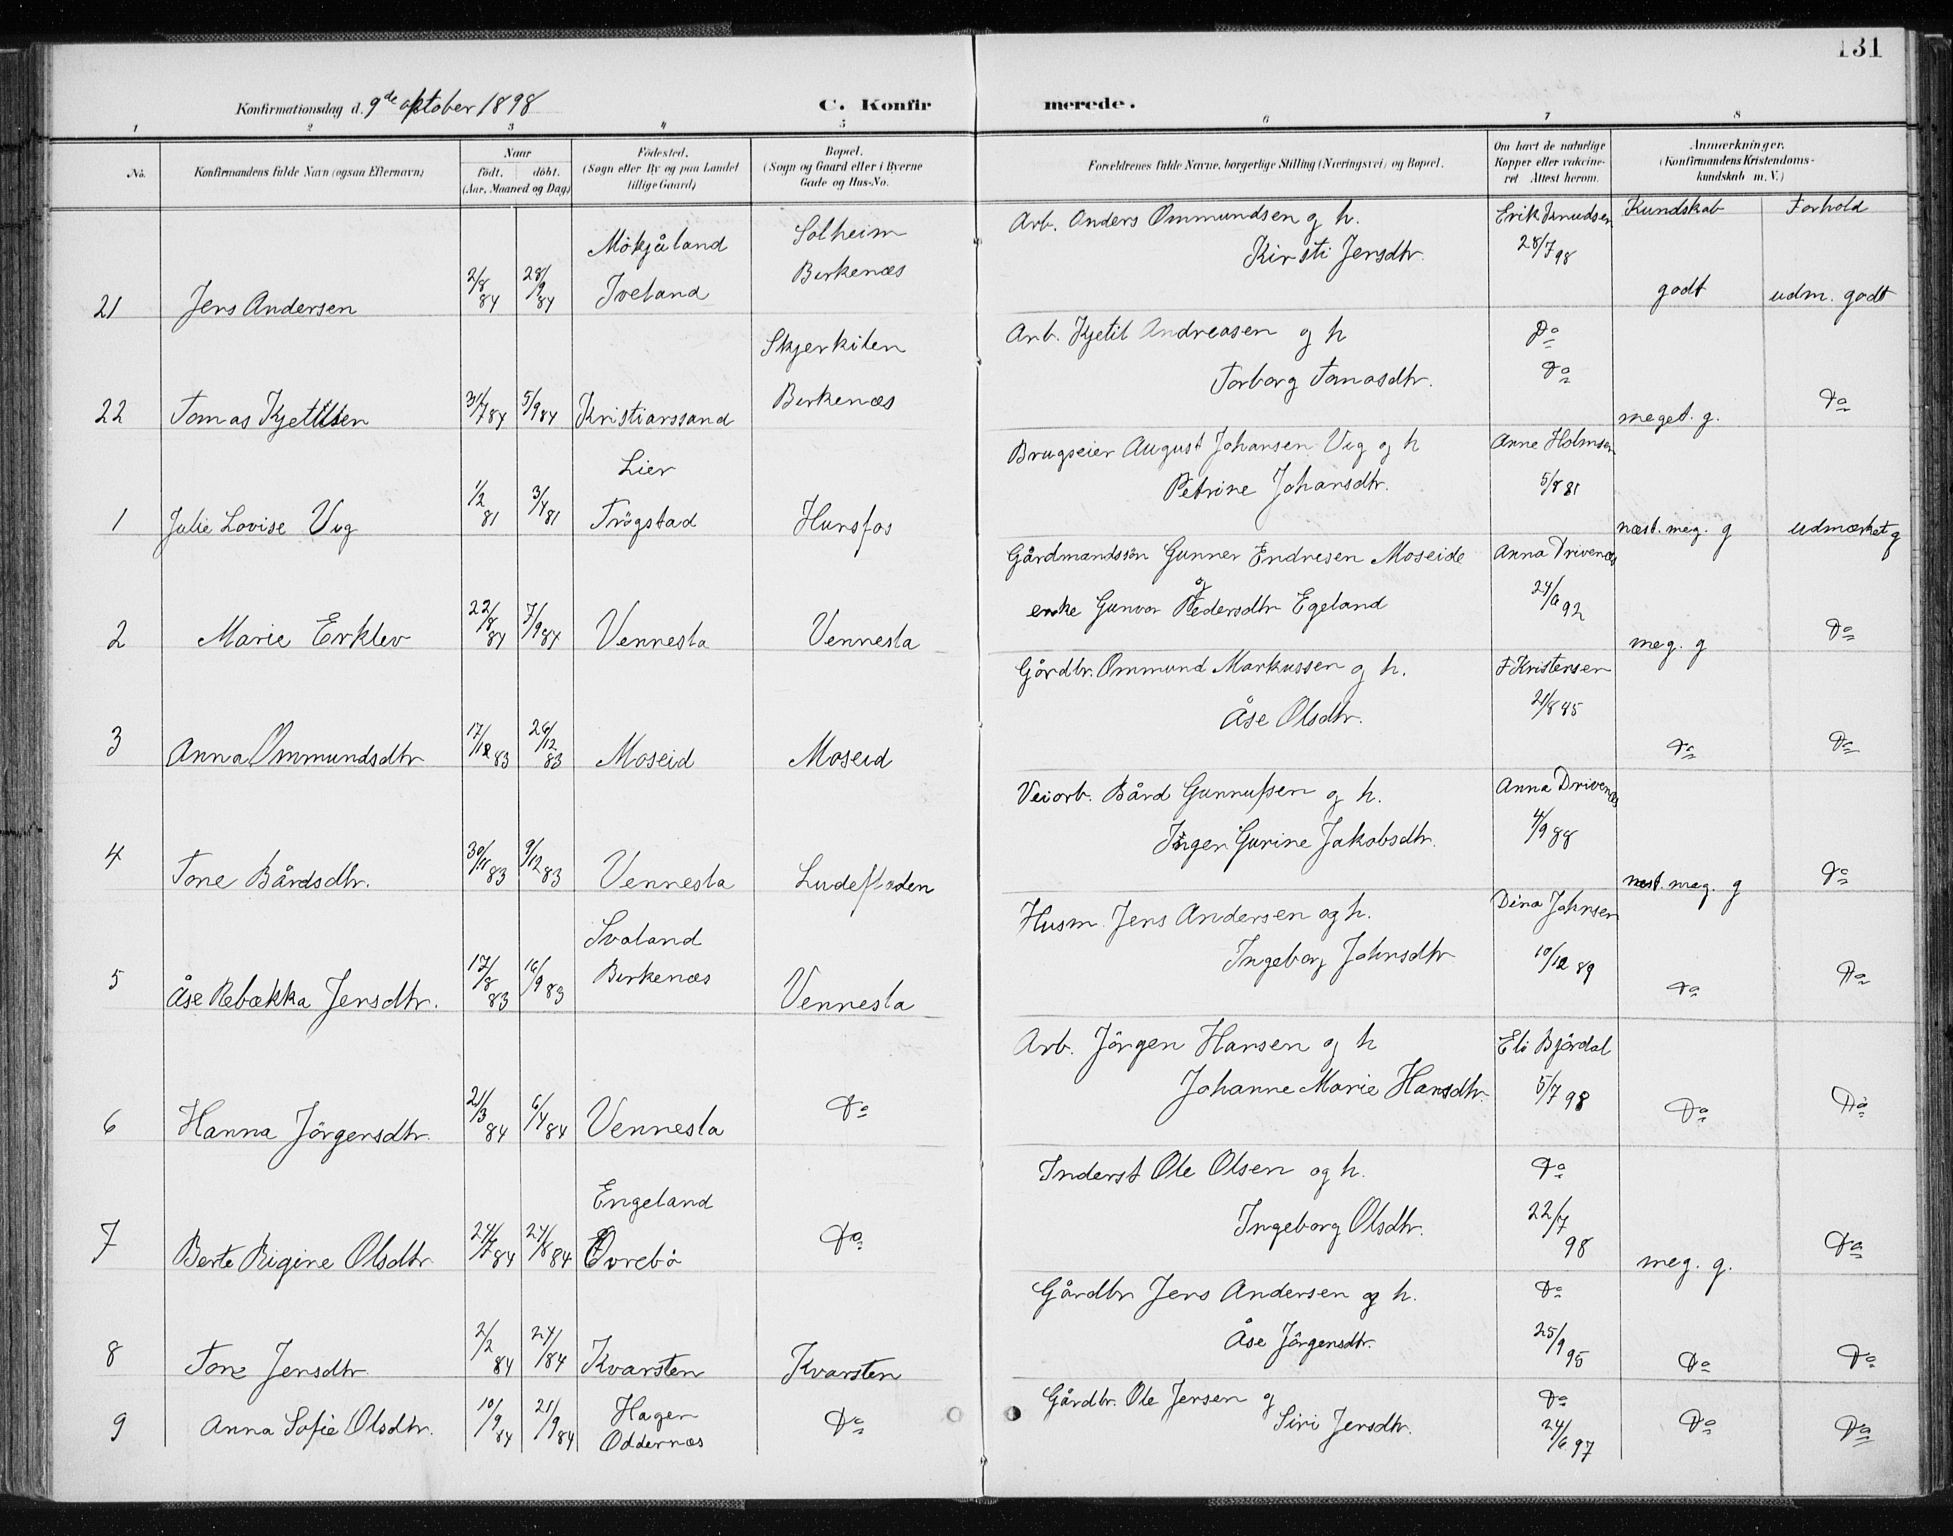 131
Konfirmationsdag d. 9de oktober 1898
C. Konfirmerede.
1 2 3 4 5 6 7 8
No.
Konfirmandens fulde Navn (ogsaa Efternavn)
Naar
født. døbt.
(Aar, Maaned og Dag)
Födested.
(Sogn eller By og paa Landet
tillige Gaard)
Bopæl.
(Sogn og Gaard eller i Byerne
Gade og Hus-No.
Forældrenes fulde Navne, borgerlige Stilling (Næringsvei) og Bopæl.
Om havt de naturlige
Kopper eller vakcine-
ret. Attest herom.
Anmærkninger.
(Konfirmandens Kristendoms-
kundskab m. V.)
Kundskab Forhold
21 Jens Andersen 2/8 84 28/9 84 Mökjåland Iveland Solheim Birkenæs Arb. Anders Ommundsen og h. Kirsti Jensdtr. Erik Knudsen 28/7 98 godt udm. godt
22 Tomas Kjetilsen 31/7 84 5/9 84 Kristianssand Skjerkilen Birkenæs Arb. Kjetil Andreasen og h Torborg Tomasdtr. Do Do meget. g. Do
1 Julie Lovise Vig 1/2 81 3/4 81 Lier Trögstad Hunsfos Brugseier August Johansen Vig og h Petrine Johansdtr. Anne Holmsen 5/8 81 næst. meg. g udmærket g
2 Marie Erklev 22/8 84 7/9 84 Vennesla Vennesla Gårdmandssön Gunner Endresen Moseide og enke Gunvor Pedersdtr Egeland Anna Drivenæs 24/6 92 meg. g Do
3 Anna Ommundsdtr 17/12 83 26/12 83 Moseid Moseid Gårdbr. Ommund Markussen og h. Åse Olsdtr. F Kristensen 21/8 85 Do Do
4 Tone Bårdsdtr. 30/11 83 9/12 83 Vennesla Ludefladen Veiarb. Bård Gunnufsen og h. Inger Gurine Jakobsdtr. Anna Drivenæs 4/9 88 næst. meg. g Do
5 Åse Rebækka Jensdtr. 17/8 83 16/9 83 Svaland Birkenæs Vennesla Husm. Jens Andersen og h. Ingeborg Johnsdtr Dina Johnsen 10/12 89 Do Do
6 Hanna Jörgensdtr. 21/3 84 6/4 84 Vennesla Do Arb. Jörgen Hansen og h Johanne Marie Hansdtr. Eli Björdal 5/7 98 Do Do
7 Berte Rigine Olsdtr 24/7 84 24/8 84 Engeland Övrebö Do Inderst Ole Olsen og h. Ingeborg Olsdtr. Do 22/7 98 meg. g. Do
8 Tone Jensdtr 2/2 84 24/ 84 Kvarsten Kvarsten Gårdbr Jens Andersen og h. Åse Jörgensdtr. Do 25/9 95 Do Do
9 Anna Sofie Olsdtr. 10/9 84 21/9 84 Hagen Oddernæs Do Gårdbr. Ole Jensen og Siri Jensdtr. Do 24/6 97 Do Do